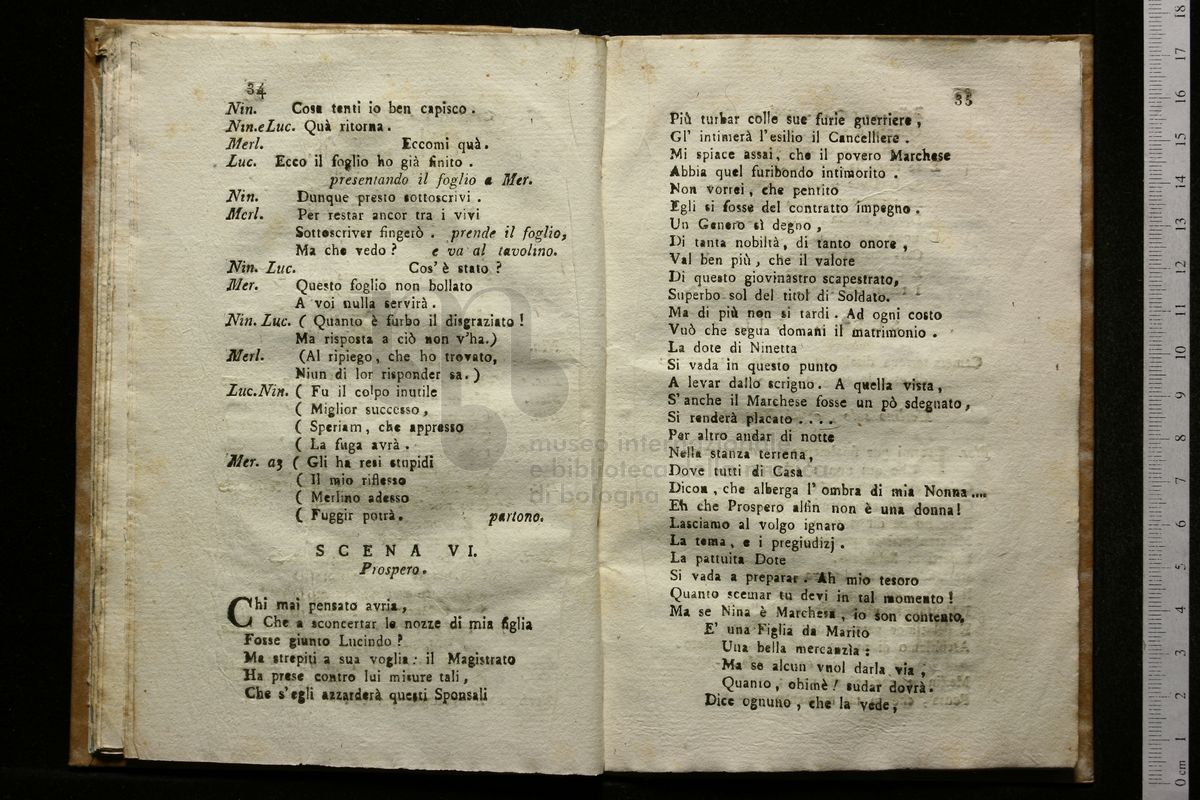 34
Nin. Cosa tenti io ben capisco.
Nin.e Luc. Quà ritorna.
Merl. Eccomi quà.
Luc. Ecco il foglio ho già finito.
presentando il foglio a Mer.
Nin. Dunque presto sottoscrivi.
Merl. Per restar ancor tra i vivi
Sottoscriver fingerò. prende il foglio,
Ma che vedo? e va al tavolino.
Nin. Luc. Cos' è stato?
Mer. Questo foglio non bollato
A voi nulla servirà.
Nin. Luc. ( Quanto è furbo il disgraziato!
Ma risposta a ciò non v'ha.)
Merl. (Al ripiego, che ho trovato,
Niun di lor risponder sa.)
Luc.Nin. ( Fu il colpo inutile
( Miglior successo,
( Speriam, che appresso
( La fuga avrà.
Mer. a3 ( Gli ha resi stupidi
( Il mio riflesso
( Merlino adesso
( Fuggir potrà. partono.
SCENA VI.
Prospero.
Chi mai pensato avria,
Che a sconcertar le nozze di mia figlia
Fosse giunto Lucindo?
Ma strepiti a sua voglia: il Magistrato
Ha prese contro lui misure tali,
Che s'egli azzarderà questi Sponsali
35
Più turbar colle sue furie guerriere,
Gl' intimerà l'esilio il Cancelliere.
Mi spiace assai, che il povero Marchese
Abbia quel furibondo intimorito.
Non vorrei, che pentito
Egli si fosse del contratto impegno.
Un Genero sì degno,
Di tanta nobiltà, di tanto onore,
Val ben più, che il valore
Di questo giovinastro scapestrato,
Superbo sol del titol di Soldato.
Ma di più non si tardi. Ad ogni costo
Vuò che segua domani il matrimonio.
La dote di Ninetta
Si vada in questo punto
A levar dallo scrigno. A quella vista,
S'anche il Marchese fosse un pò sdegnato,
Si renderà placato....
Per altro andar di notte
Nella stanza terrena,
Dove tutti di Casa
Dicon, che alberga l' ombra di mia Nonna....
Eh che Prospero alfin non è una donna!
Lasciamo al volgo ignaro
La tema, e i pregiudizj.
La pattuita Dote
Si vada a preparar. Ah mio tesoro
Quanto scemar tu devi in tal momento!
Ma se Nina è Marchesa, io son contento,
E' una Figlia da Marito
Una bella mercanzìa:
Ma se alcun vuol darla via,
Quanto, ohimè! sudar dovrà.
Dice ognuno, che la vede,
museo internazionale
e biblioteca della musica
di bologna
0 cm 1 2 3 4 5 6 7 8 9 10 11 12 13 14 15 16 17 18